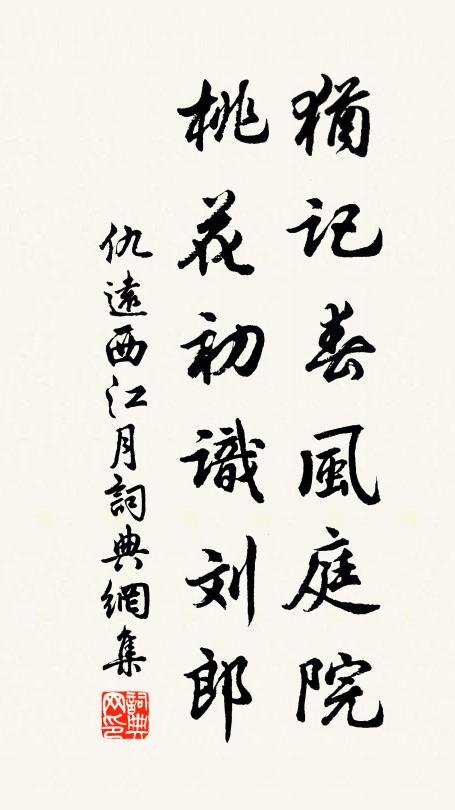 猶記春風庭院
桃花初識刘郎
仇遠西江月詞典網集
詞典網印